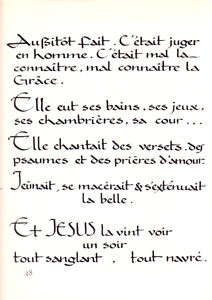 Aussitôt fait. C'était juger
en homme. C'était mal la
connaître, mal connaître la
Grâce.
Elle eut ses bains, ses jeux,
ses chambrières, sa cour...
Elle chantait des versets, des
psaumes et des prières d'amour.
Jeûnait, se macérait & s'exténuait
la belle.
Et JESUS la vint voir
un soir
tout sanglant, tout navré.
28